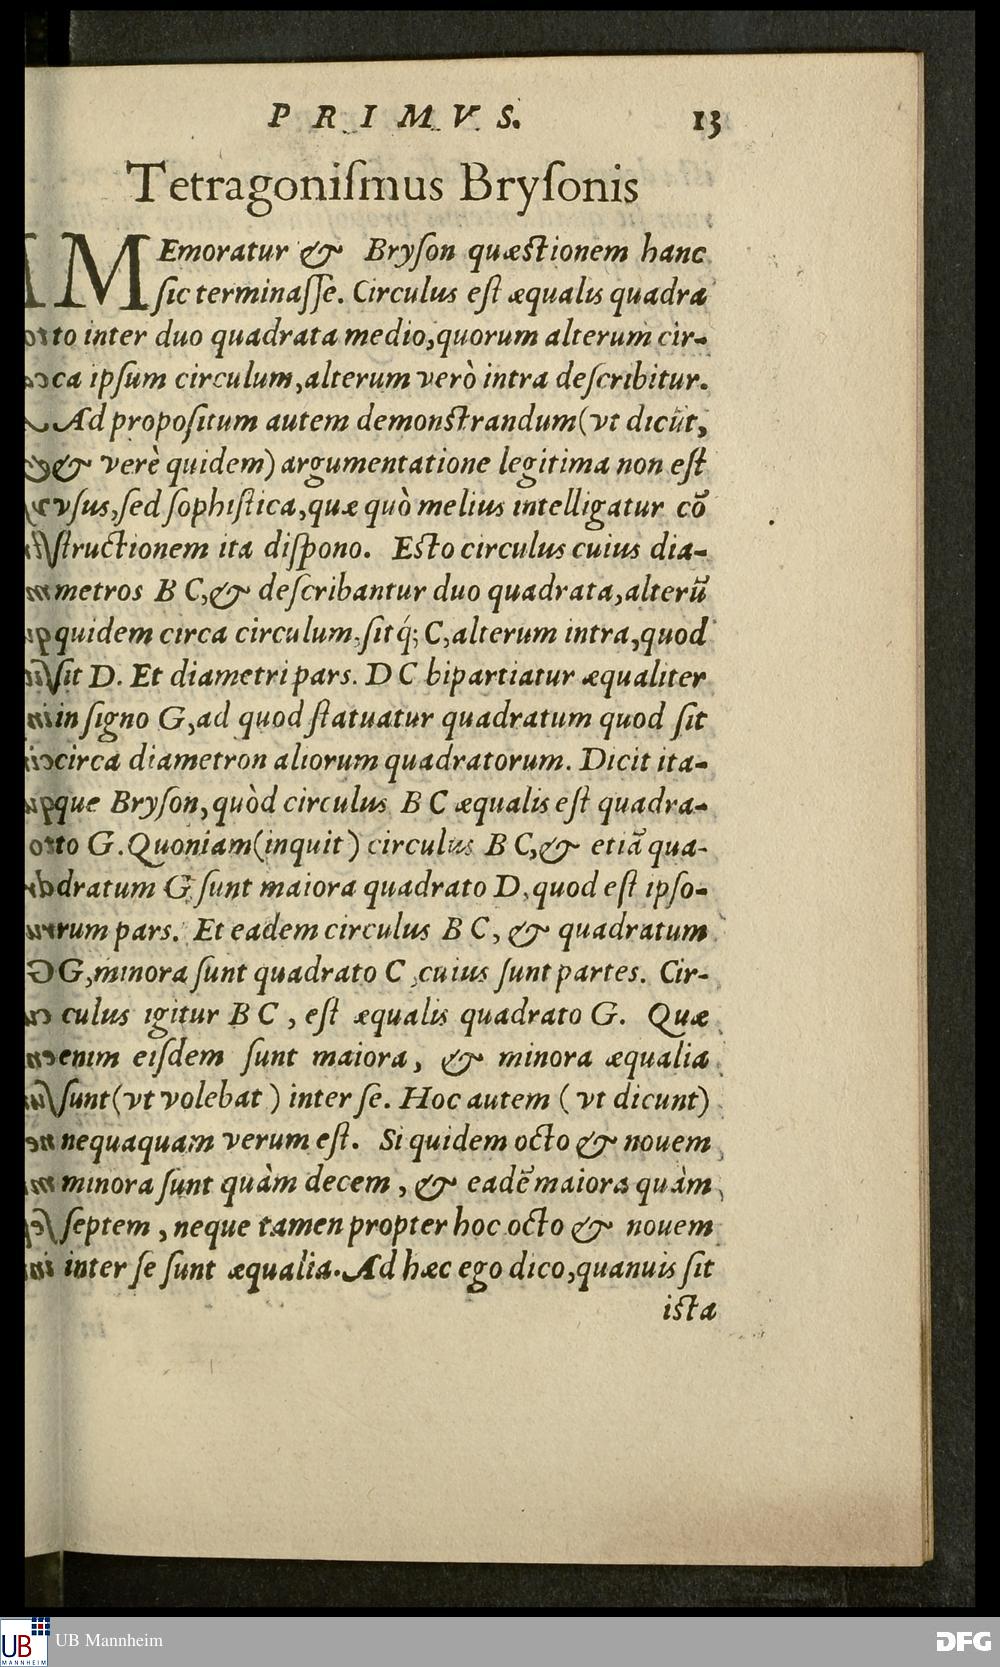 PRIMVS. 13
Tetragoniſmus Bryſonis
MEmoratur & Bryſon quæstionem hanc
ſic terminaſſe. Circulus eſt æqualis quadra
to inter duo quadrata medio, quorum alterum cir-
ca ipſum circulum, alterum verò intra deſcribitur.
Ad propoſitum autem demonstrandum (vt dicũt,
& verè quidem) argumentatione legitima non eſt
vſus, ſed ſophiſtica, quæ quò melius intelligatur cõ
ſtructionem ita diſpono. Esto circulus cuius dia-
metros B C, & deſcribantur duo quadrata, alterũ
quidem circa circulum, ſitq́; C, alterum intra, quod
ſit D. Et diametri pars. D C bipartiatur æqualiter
in ſigno G, ad quod ſtatuatur quadratum quod ſit
circa diametron aliorum quadratorum. Dicit ita-
que Bryſon, quòd circulus B C æqualis eſt quadra-
to G. Quoniam (inquit) circulus B C, & etiã qua-
dratum G ſunt maiora quadrato D, quod eſt ipſo-
rum pars. Et eadem circulus B C, & quadratum
G, minora ſunt quadrato C, cuius ſunt partes. Cir-
culus igitur B C, eſt æqualis quadrato G. Quæ
enim eiſdem ſunt maiora, & minora æqualia
ſunt (vt volebat) inter ſe. Hoc autem (vt dicunt)
nequaquam verum eſt. Si quidem octo & nouem
minora ſunt quàm decem, & eadẽ maiora quàm
ſeptem, neque tamen propter hoc octo & nouem
inter ſe ſunt æqualia. Ad hæc ego dico, quanuis ſit
ista
UB MANNHEIM
UB Mannheim
DFG